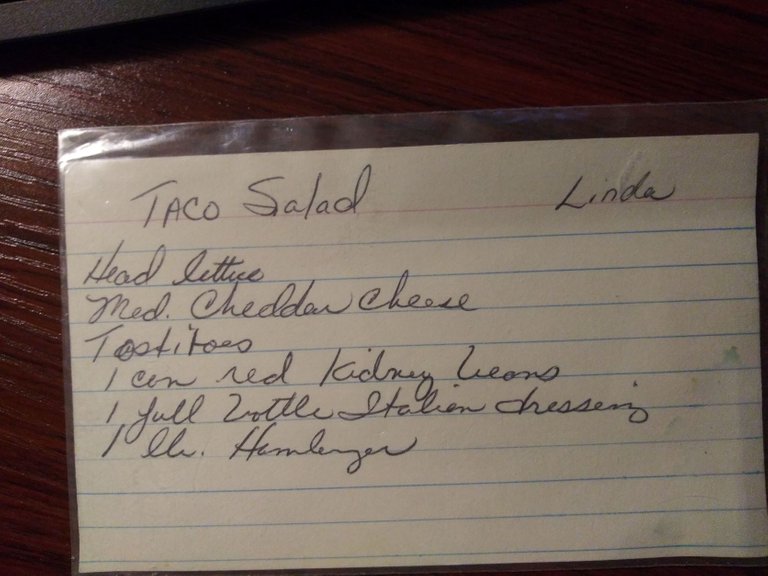 Taco Salad Linda
Head lettuce
Med. Cheddar Cheese
Tostitoes
1 can red Kidney beans
1 full bottle Italian dressing
1 lb. Hamburger